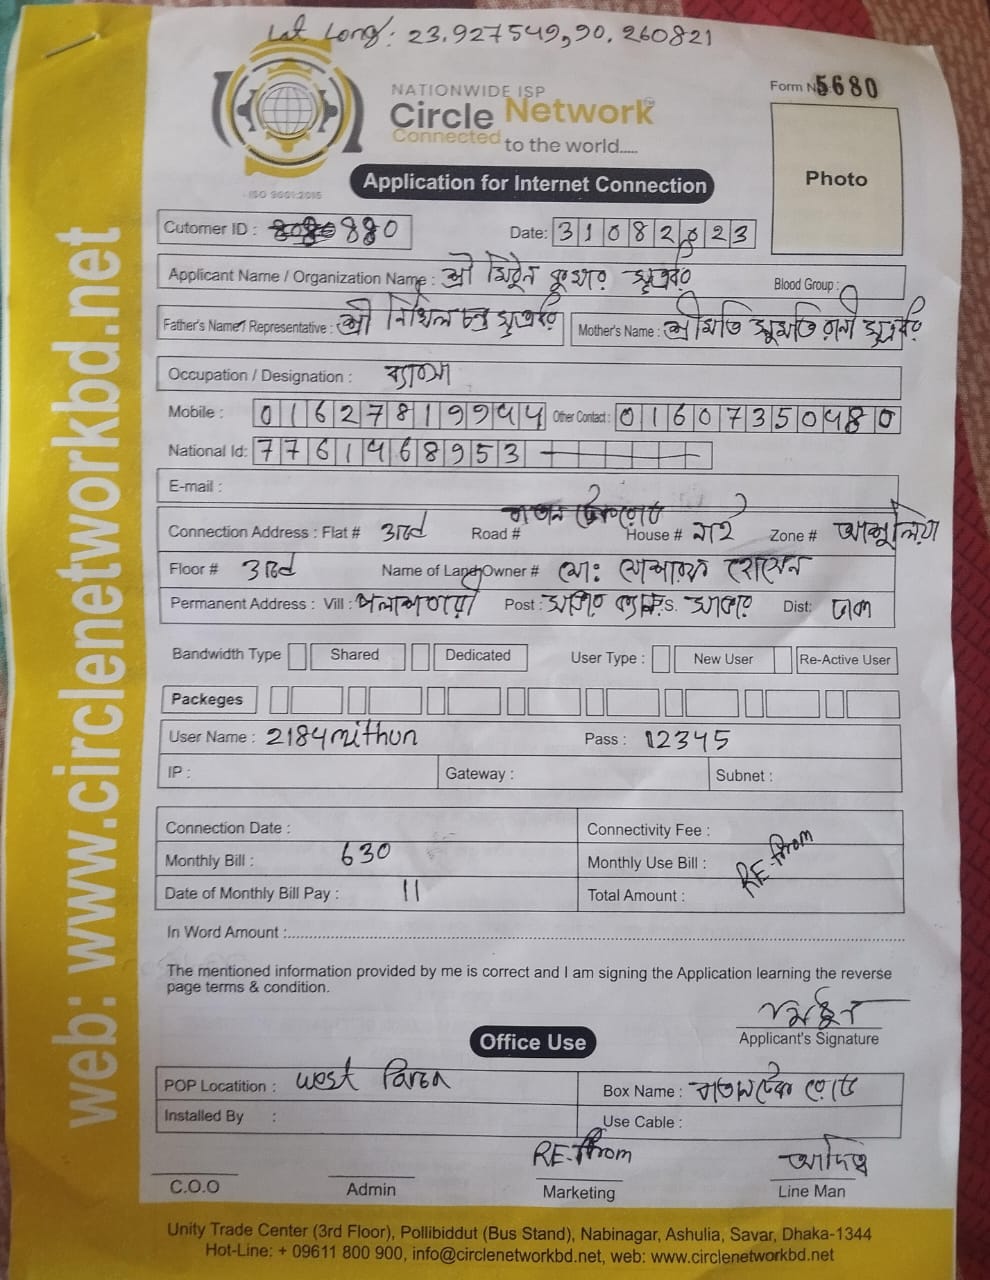 Lat Long: 23.927549,90.260821
NATIONWIDE ISP
Circle Network
Connected to the world.....
ISO 9001:2015
Form No 5680
Photo
Application for Internet Connection
Cutomer ID : 880
Date: 31082023
Applicant Name / Organization Name : শ্রী মিঠুন কুমার সূত্রধর
Blood Group :
Father's Name / Representative : শ্রী নিখিল চন্দ্র সূত্রধর
Mother's Name : শ্রীমতি সুমতি রানী সূত্রধর
Occupation / Designation :
Mobile : 01627819944 Other Contact : 01607350480
National Id: 7761468953
E-mail :
Connection Address : Flat # 3rd Road # House # নাই Zone # আশুলিয়া
Floor # 3rd Name of Land Owner # মো: মোশারফ হোসেন
Permanent Address : Vill : পলাশবাড়ী Post : P.S. সাভার Dist: ঢাকা
Bandwidth Type Shared Dedicated User Type : New User Re-Active User
Packeges
User Name : 2184mithun Pass : 12345
IP : Gateway : Subnet :
Connection Date : Connectivity Fee :
Monthly Bill : 630 Monthly Use Bill :
Date of Monthly Bill Pay : 11 Total Amount :
RE-from
In Word Amount :
The mentioned information provided by me is correct and I am signing the Application learning the reverse
page terms & condition.
Applicant's Signature
Office Use
POP Locatition : west Parsa Box Name :
Installed By : Use Cable :
RE-from
C.O.O Admin Marketing Line Man
Unity Trade Center (3rd Floor), Pollibiddut (Bus Stand), Nabinagar, Ashulia, Savar, Dhaka-1344
Hot-Line: + 09611 800 900, info@circlenetworkbd.net, web: www.circlenetworkbd.net
web: www.circlenetworkbd.net